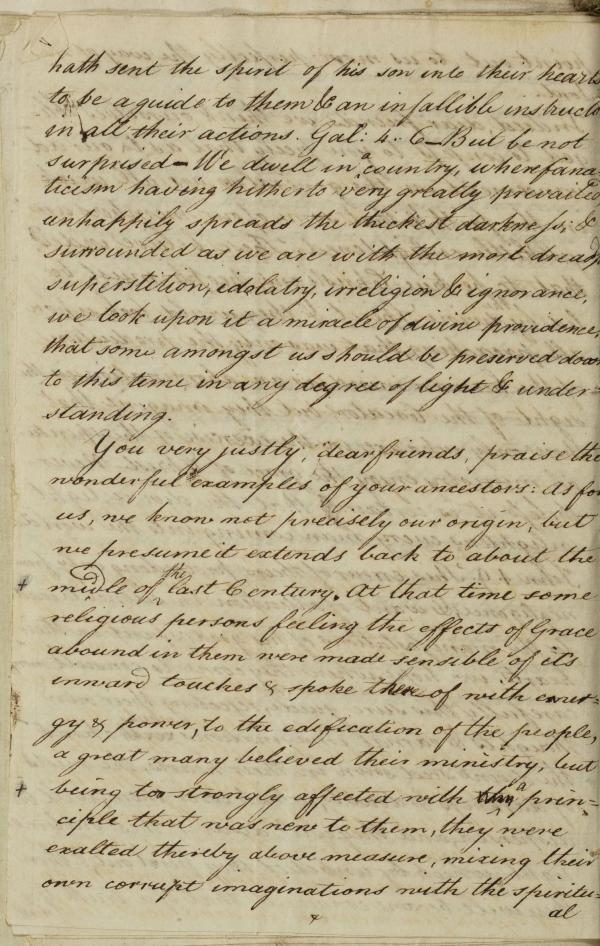 hath sent the spirit of his son into their hearts
to be a guide to them & an infallible instructo
in all their actions. Gal: 4. 6 – But be not
surprised – We dwell in a country, where fana=
ticism having hitherto very greatly prevailed
unhappily spreads the thickest darkness; &
surrounded as we are with the most dreadf
superstition, idolatry, irreligion & ignorance,
we look upon it a miracle of divine providence,
that some amongst us should be preserved down
to this time in any degree of light & under=
standing.
You very justly, dear friends, praise the
wonderful examples of your ancestors: As for
us, we know not precisely our origin, but
we presume it extends back to about the
+ midle of the last Century. At that time some
religious persons feeling the effects of Grace
abound in them were made sensible of it's
inward touches & spoke thereof with ener-
gy & power, to the edification of the people,
a great many believed their ministry, but
+ being too strongly affected with a prin=
ciple that was new to them, they were
exalted thereby above measure, mixing their
own corrupt imaginations with the spiritu=
al